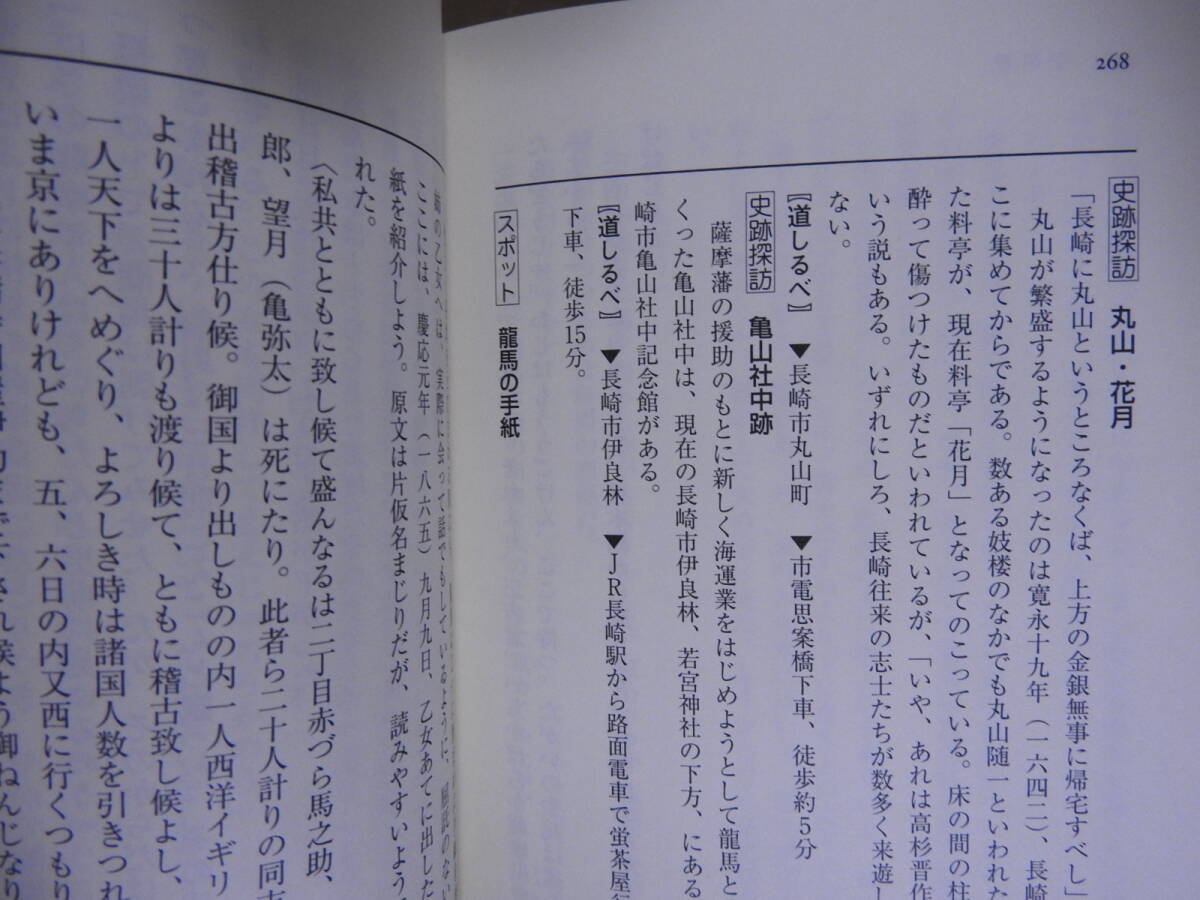 268
史跡探訪 丸山・花月
「長崎に丸山というところなくば、上方の金銀無事に帰宅すべし」
丸山が繁盛するようになったのは寛永十九年（一六四二）、長崎
こに集めてからである。数ある妓楼のなかでも丸山随一といわれた
た料亭が、現在料亭「花月」となってのこっている。床の間の柱
酔って傷つけたものだといわれているが、「いや、あれは高杉晋作
いう説もある。いずれにしろ、長崎往来の志士たちが数多く来遊し
ない。
〖道しるべ〗 ▼長崎市丸山町 ▼市電思案橋下車、徒歩約5分
史跡探訪 亀山社中跡
薩摩藩の援助のもとに新しく海運業をはじめようとして龍馬と
くった亀山社中は、現在の長崎市伊良林、若宮神社の下方、にある
崎市亀山社中記念館がある。
〖道しるべ〗 ▼長崎市伊良林 ▼JR長崎駅から路面電車で蛍茶屋行
下車、徒歩15分。
スポット 龍馬の手紙
姉の乙女へは、実際に会って話でもしているように、
ここには、慶応元年（一八六五）九月九日、乙女あてに出した
紙を紹介しよう。原文は片仮名まじりだが、読みやすいよう
れた。
〈私共とともに致し候て盛んなるは二丁目赤づら馬之助、
郎、望月（亀弥太）は死にたり。此者ら二十人計りの同志
出稽古方仕り候。御国より出しものの内一人西洋イギリ
よりは三十人計りも渡り候て、ともに稽古致し候よし、
一人天下をへめぐり、よろしき時は諸国人数を引きつれ
いま京にありけれども、五、六日の内又西に行くつもり
され候よう御ねんじなり